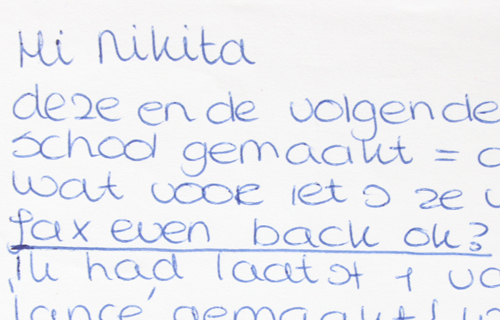 Hi Nikita
deze en de volgende
school gemaakt =
wat voor iets ze
fax even back ok?
ik had laatst 1
'lance' gemaakt!